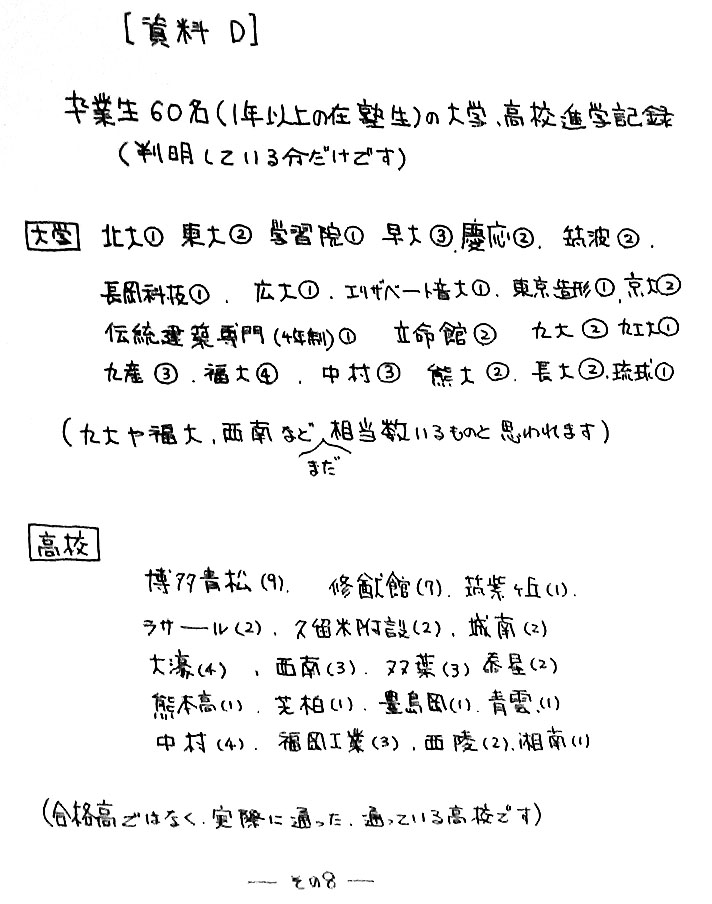 [資料 D]
卒業生60名(1年以上の在塾生)の大学、高校進学記録
(判明している分だけです)
大学 北大① 東大② 学習院① 早大③、慶応②、筑波②、
長岡科技①、広大①、エリザベート音大①、東京造形①、京大②
伝統建築専門(4年制)① 立命館② 九大② 九工大①
九産③、福大④、中村③ 熊大②、長大②、琉球①
(九大や福大、西南などまだ相当数いるものと思われます)
高校
博多青松(9)、修猷館(7)、筑紫ヶ丘(1)、
ラサール(2)、久留米附設(2)、城南(2)
大濠(4)、西南(3)、双葉(3) 泰星(2)
熊本高(1)、芝柏(1)、豊島岡(1)、青雲(1)
中村(4)、福岡工業(3)、西陵(2)、湘南(1)
(合格高ではなく、実際に通った、通っている高校です)
— その8 —